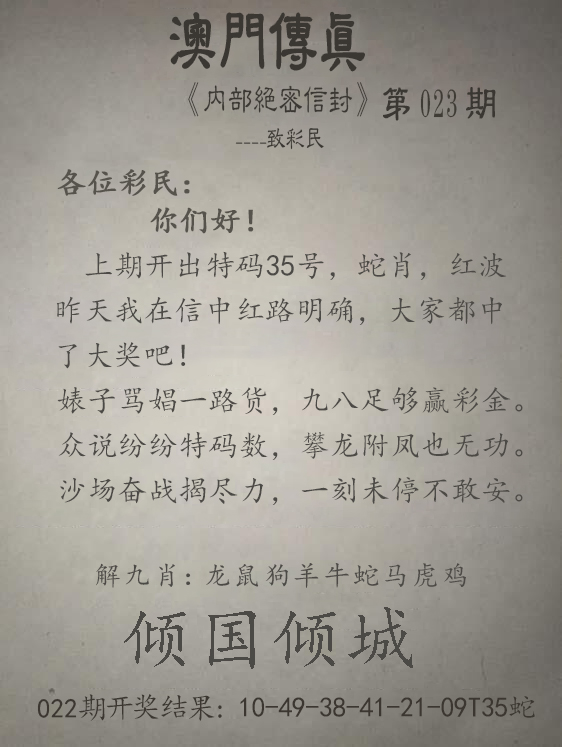 澳門傳眞
《内部絕密信封》第023期
----致彩民
各位彩民：
你们好！
上期开出特码35号，蛇肖，红波
昨天我在信中红路明确，大家都中
了大奖吧！
婊子骂娼一路货，九八足够赢彩金。
众说纷纷特码数，攀龙附凤也无功。
沙场奋战揭尽力，一刻未停不敢安。
解九肖：龙鼠狗羊牛蛇马虎鸡
倾国倾城
022期开奖结果：10-49-38-41-21-09T35蛇